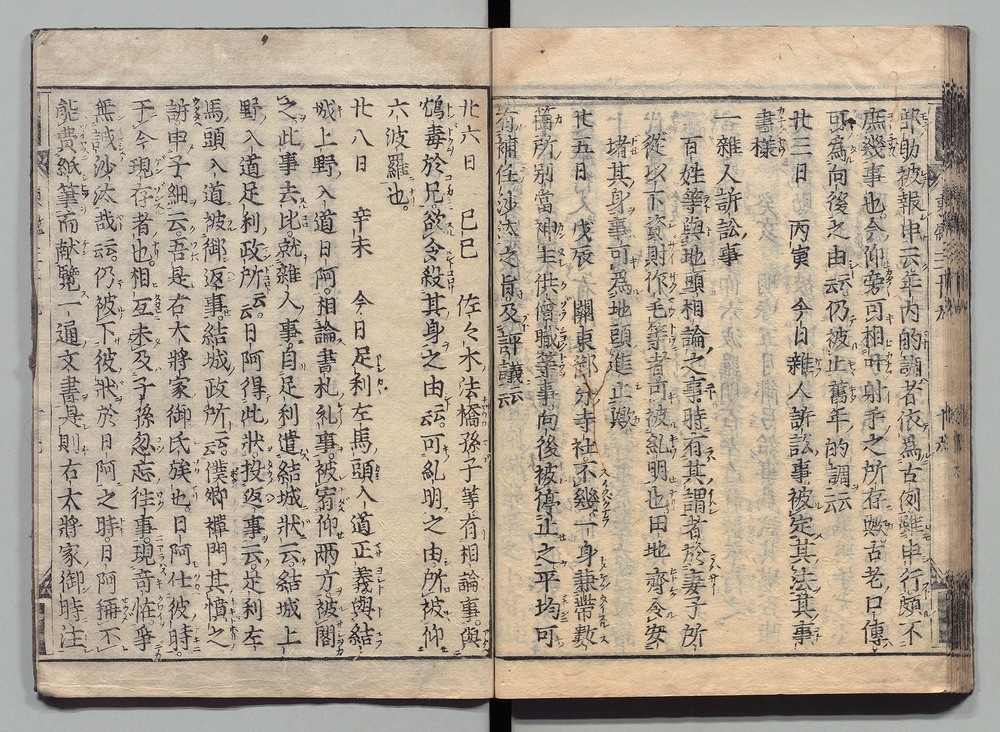 郎助被報申云年内的調者依爲古例雖申行頗不
庶幾事也今仰旁可相叶射手之所存歟古老口傳
可為向後之由云云仍被止舊年的調云云
廿三日 丙寅 今日雜人訴訟事被定其法其事
書様
一雜人訴訟事
百姓等與地頭相論之事時有其謂者於妻子所
從以下資財作毛等者可被糺明也田地齊令安
堵其身事可為地頭進止歟
廿五日 戊辰 關東御分寺社不幾一身兼帶數
箇所別當神主供僧職等事向後被停止之平均可
有補任沙汰之旨及評議云云
廿六日 己巳 佐々木法橋孫子等有相論事與
鴆毒於兄欲令殺其身之由云云可糺明之由所被仰
六波羅也
廿八日 辛未 今日足利左馬頭入道正義與結
城上野入道日阿相論書札礼事被宥仰兩方被閣
之此事去比就雜人事自足利遣結城狀云結城上
野入道足利政所云云日阿得此狀投返事云足利左
馬頭入道被御返事結城政所云云僕卿禪門其憤之
訴申子細云吾是右大將家御氏族也日阿仕彼時
于今現存者也相互未及子孫忽忘往事現奇恠爭
無誡沙汰哉云云仍被下彼狀於日阿之時日阿稱不
能費紙筆而献覽一通文書是則右大將家御時注